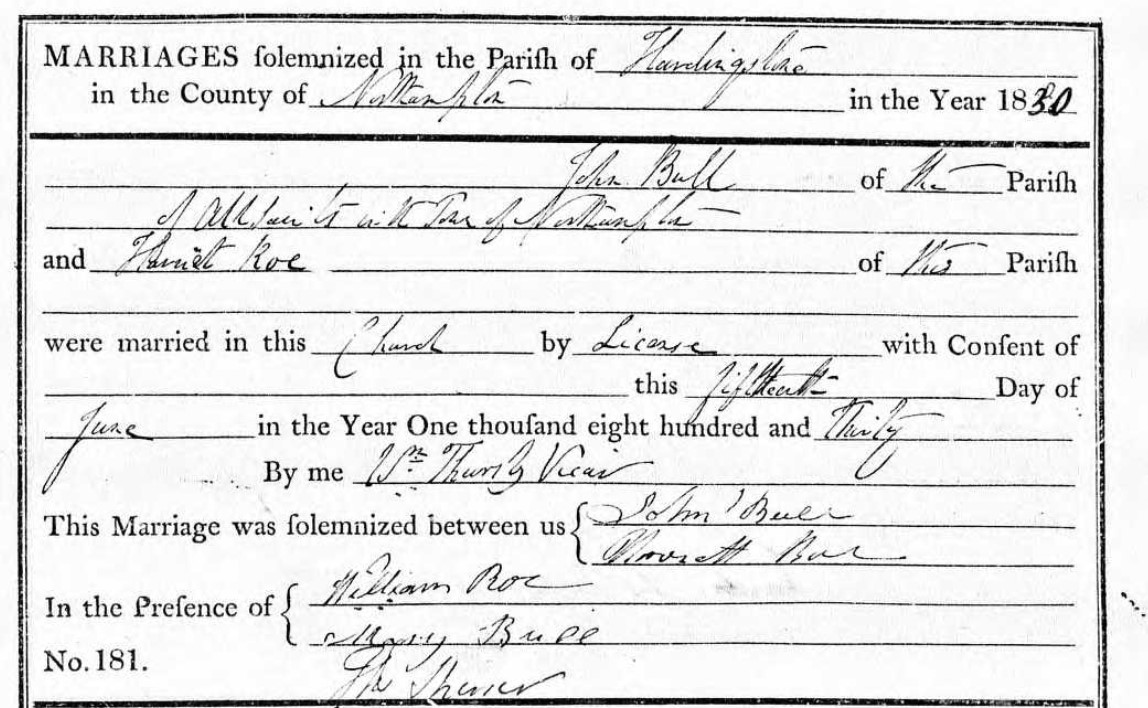 MARRIAGES ſolemnized in the Pariſh of Hardingstone
in the County of Northampton in the Year 1830
John Bull of the Pariſh
of All Saints in the Town of Northampton
and Harriet Roe of this Pariſh
were married in this Church by License with Conſent of
this fifteenth Day of
June in the Year One thouſand eight hundred and Thirty
By me Wm Vicar
This Marriage was ſolemnized between us { John Bull
Roe
In the Preſence of { William Roe
Mary Bull
No. 181.